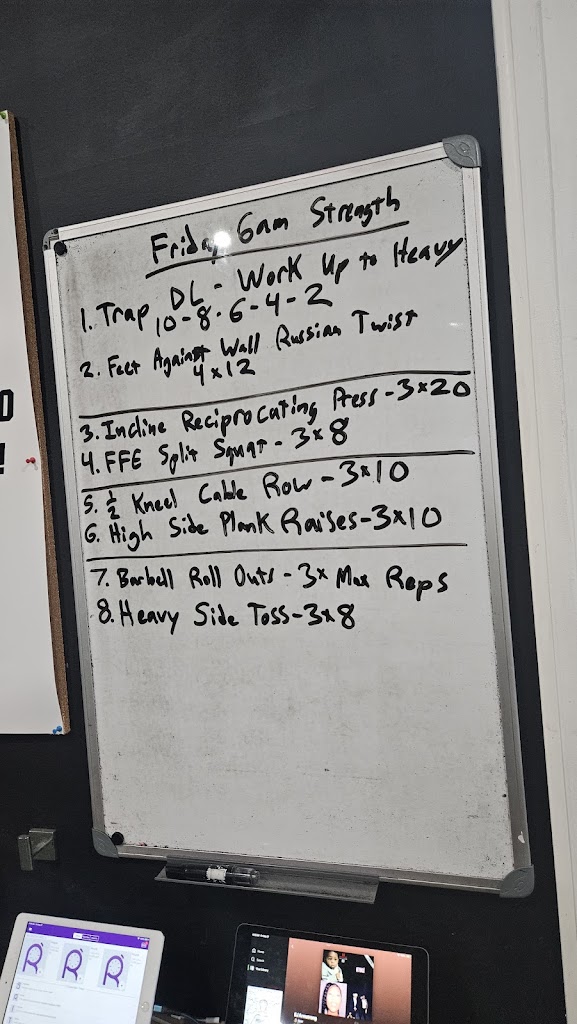 Friday 6am Strength
1. Trap DL - Work Up to Heavy
10-8-6-4-2
2. Feet Against Wall Russian Twist
4x12
3. Incline Reciprocating Press-3x20
4. FFE Split Squat - 3x8
5. ½ Kneel Cable Row - 3x10
6. High Side Plank Raises-3x10
7. Barbell Roll Outs - 3x Max Reps
8. Heavy Side Toss-3x8
O
!
R R R